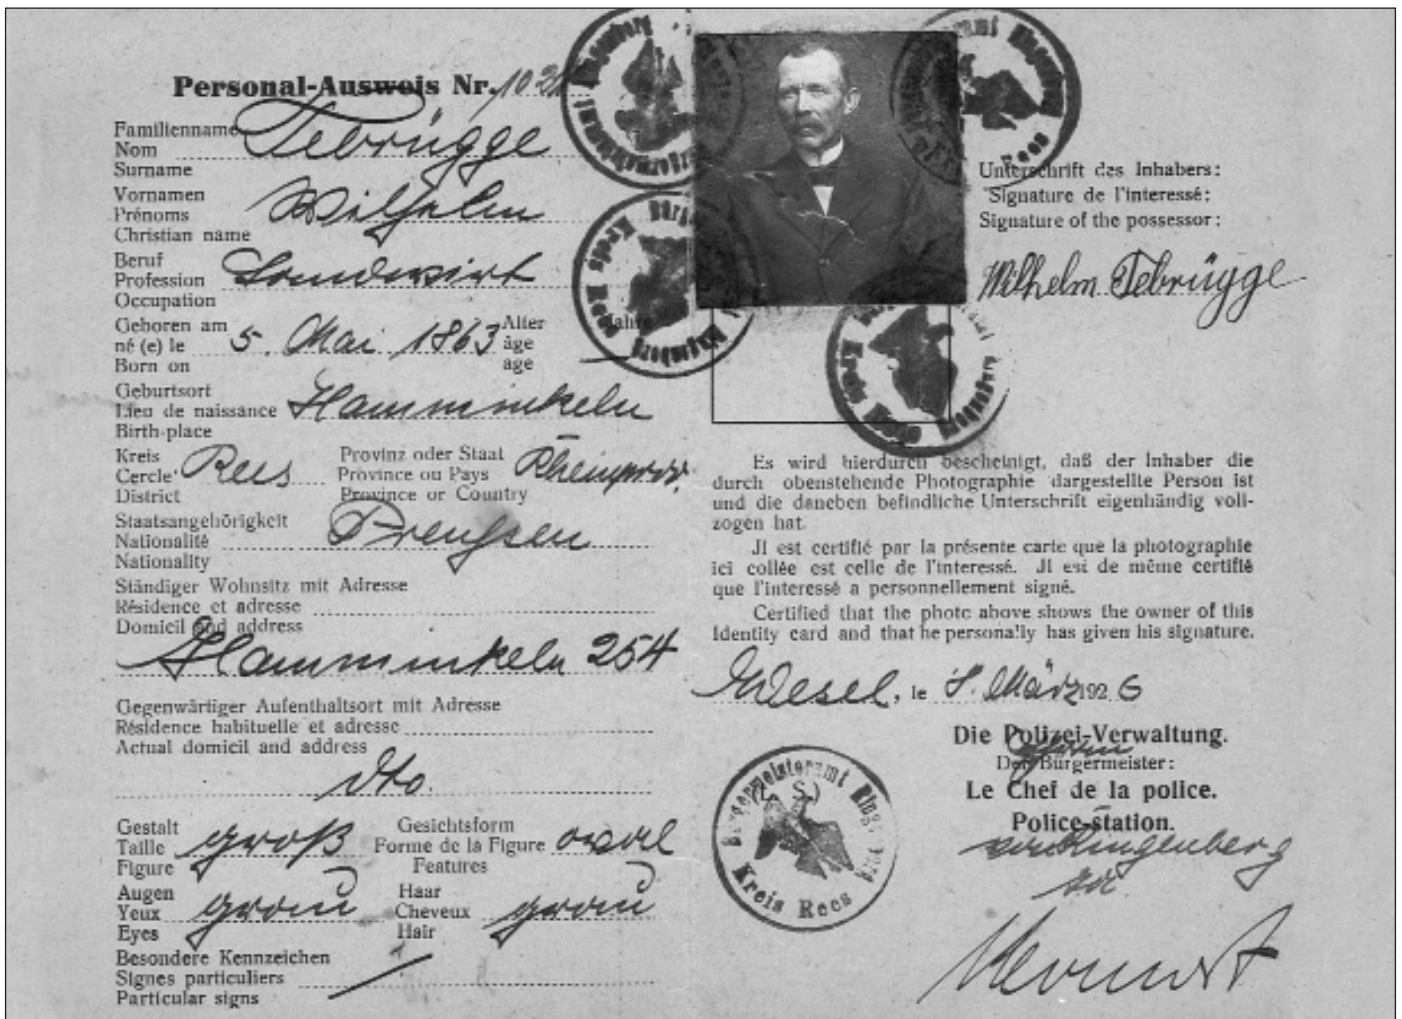 Personal-Ausweis Nr. 102
Familienname
Nom Tebrügge
Surname
Vornamen
Prénoms Wilhelm
Christian name
Beruf
Profession Landwirt
Occupation
Geboren am Alter Jahre
né (e) le 5. Mai 1863 âge —
Born on age
Geburtsort
Lieu de naissance Hamminkeln
Birth-place
Kreis Provinz oder Staat
Cercle Rees Province ou Pays Rheinprov.
District Province or Country
Staatsangehörigkeit
Nationalité Preußen
Nationality
Ständiger Wohnsitz mit Adresse
Résidence et adresse
Domicil and address
Hamminkeln 254
Gegenwärtiger Aufenthaltsort mit Adresse
Résidence habituelle et adresse
Actual domicil and address
dto.
Gestalt Gesichtsform
Taille groß Forme de la Figure oval
Figure Features
Augen Haar
Yeux grau Cheveux grau
Eyes Hair
Besondere Kennzeichen
Signes particuliers —
Particular signs
Unterschrift des Inhabers:
Signature de l'interessé:
Signature of the possessor:
Wilhelm Tebrügge
Es wird hierdurch bescheinigt, daß der Inhaber die
durch obenstehende Photographie dargestellte Person ist
und die daneben befindliche Unterschrift eigenhändig voll-
zogen hat.
Jl est certifié par la présente carte que la photographie
ici collée est celle de l'interessé. Jl est de même certifié
que l'interessé a personnellement signé.
Certified that the photo above shows the owner of this
Identity card and that he personally has given his signature.
Wesel, le 8. März 1926
Die Polizei-Verwaltung.
Der Bürgermeister:
Le Chef de la police.
Police-station.
von Ringenberg
(L. S.)
Bürgermeisteramt Ringenberg
Kreis Rees